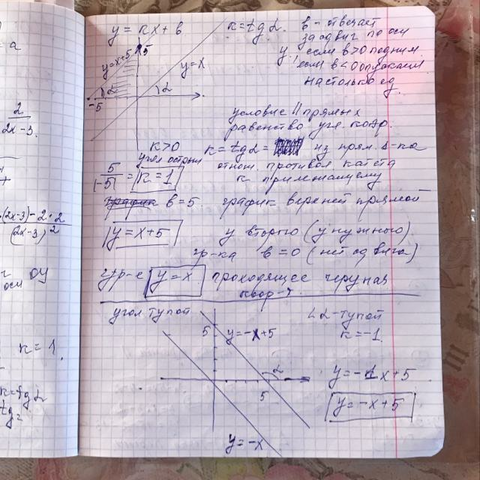 y = kx + b
k = tg α.
b - отвечает
за сдвиг по оси
y, если b>0 подним.
если b<0 опускаем
на столько ед.
5
y=x+5
y=x
α
α
-5
условие || прямых
равенство угл. коэф.
k>0
угол острый
k = tg α =
из прям. Δ-ка
отнош. противол. катета
к прилежащему
5/|-5| = k = 1
b = 5. график верхней прямой
y = x+5
у второго (у нужного)
гр-ка b = 0 (нет сдвига)
ур-е y = x проходящее через нач.
коор-т
угол тупой
5
y=-x+5
α
5
y=-x
∠α-тупой
k = -1
y = -1x+5
y = -x+5
а
2
2x-3
(2x-3)-2·2
(2x-3)²
2
оси
OY
k = 1.
k = tg α
tg =